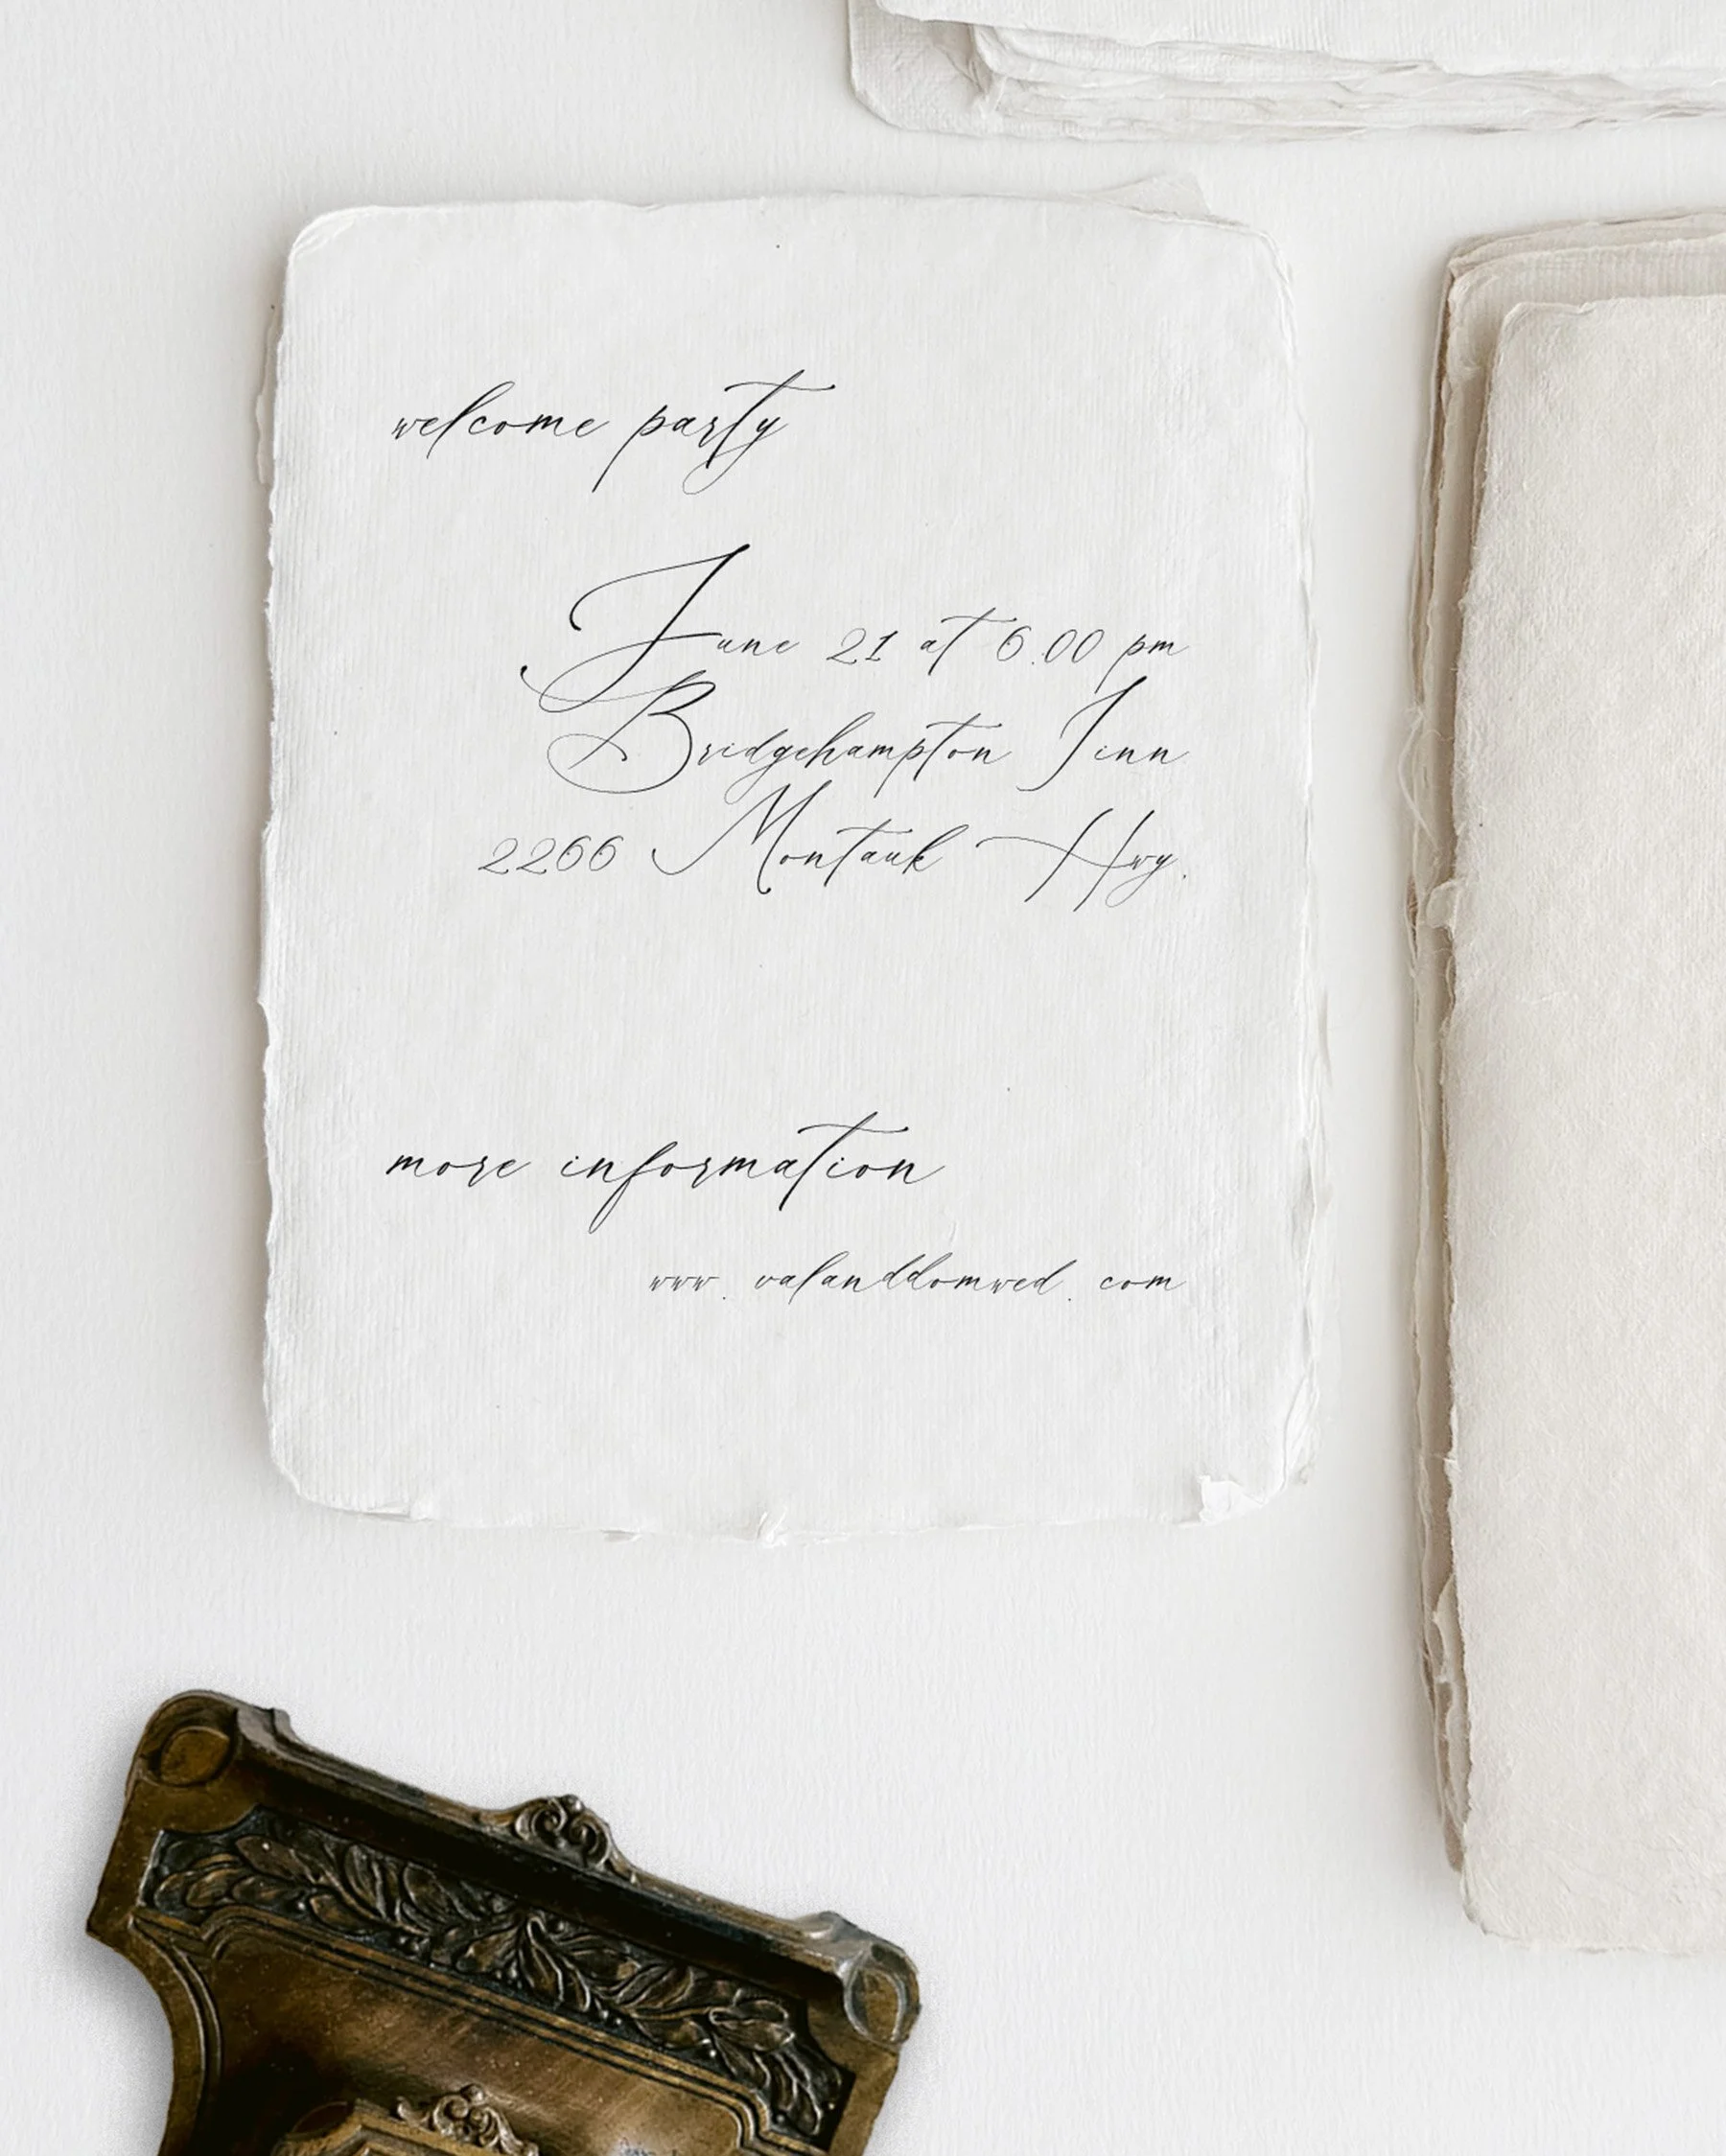 welcome party
June 21 at 6.00 pm
Bridgehampton Inn
2266 Montauk Hwy.
more information
www. valanddomwed. com